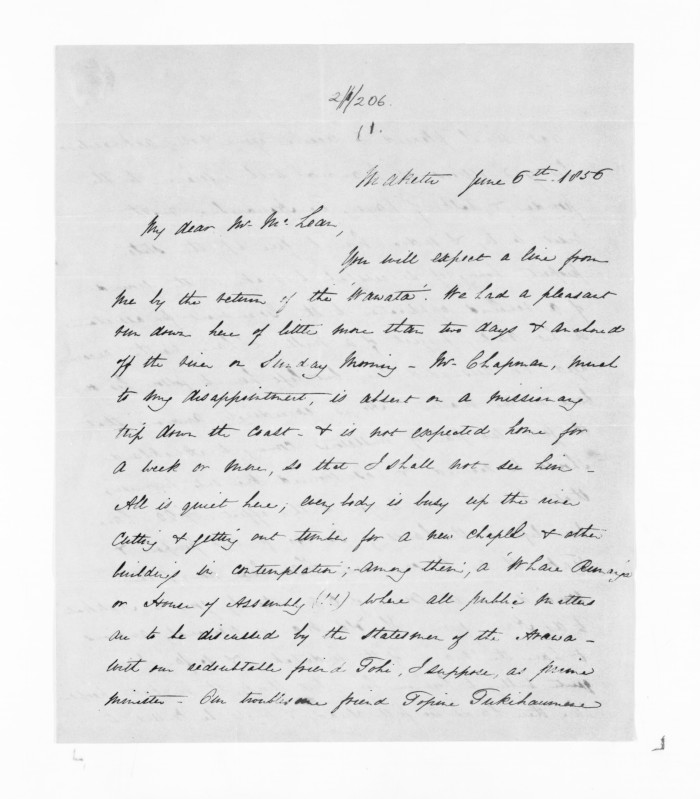 2/11/206.
11.
Maketu June 6th. 1856
My dear Mr. McLean,
You will expect a line from
me by the return of the 'Wawata'. We had a pleasant
run down here of little more than two days & anchored
off the river on Sunday Morning - Mr. Chapman, much
to my disappointment, is absent on a missionary
trip down the coast - & is not expected home for
a week or more, so that I shall not see him -
All is quiet here; everybody is busy up the river
cutting & getting out timber for a new chapel & other
buildings in contemplation; among them, a 'Whare Runanga'
or House of Assembly (!!!) where all public matters
are to be discussed by the Statesmen of the Arawa -
with our redoubtable friend Tohi, I suppose, as prime
minister - Our troublesome friend Topine Tukihaumene